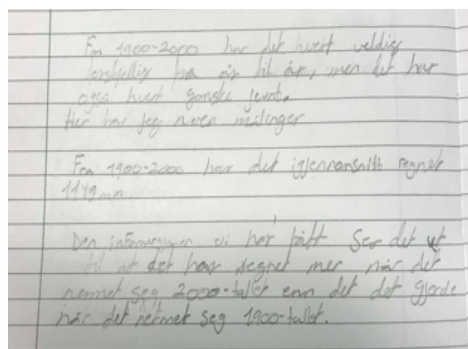 Fra 1900-2000 har det hvert veldig
forskjellig fra år til år, men det har
også hvert ganske jevnt.
Her har jeg noen målinger
Fra 1900-2000 har det igjennomsnitt regnet
1119mm.
Den informasjonen vi har fått Ser det ut
til at det har regnet mer når det
nermet seg 2000-tallet enn det det gjorde
når det nermet seg 1900-tallet.